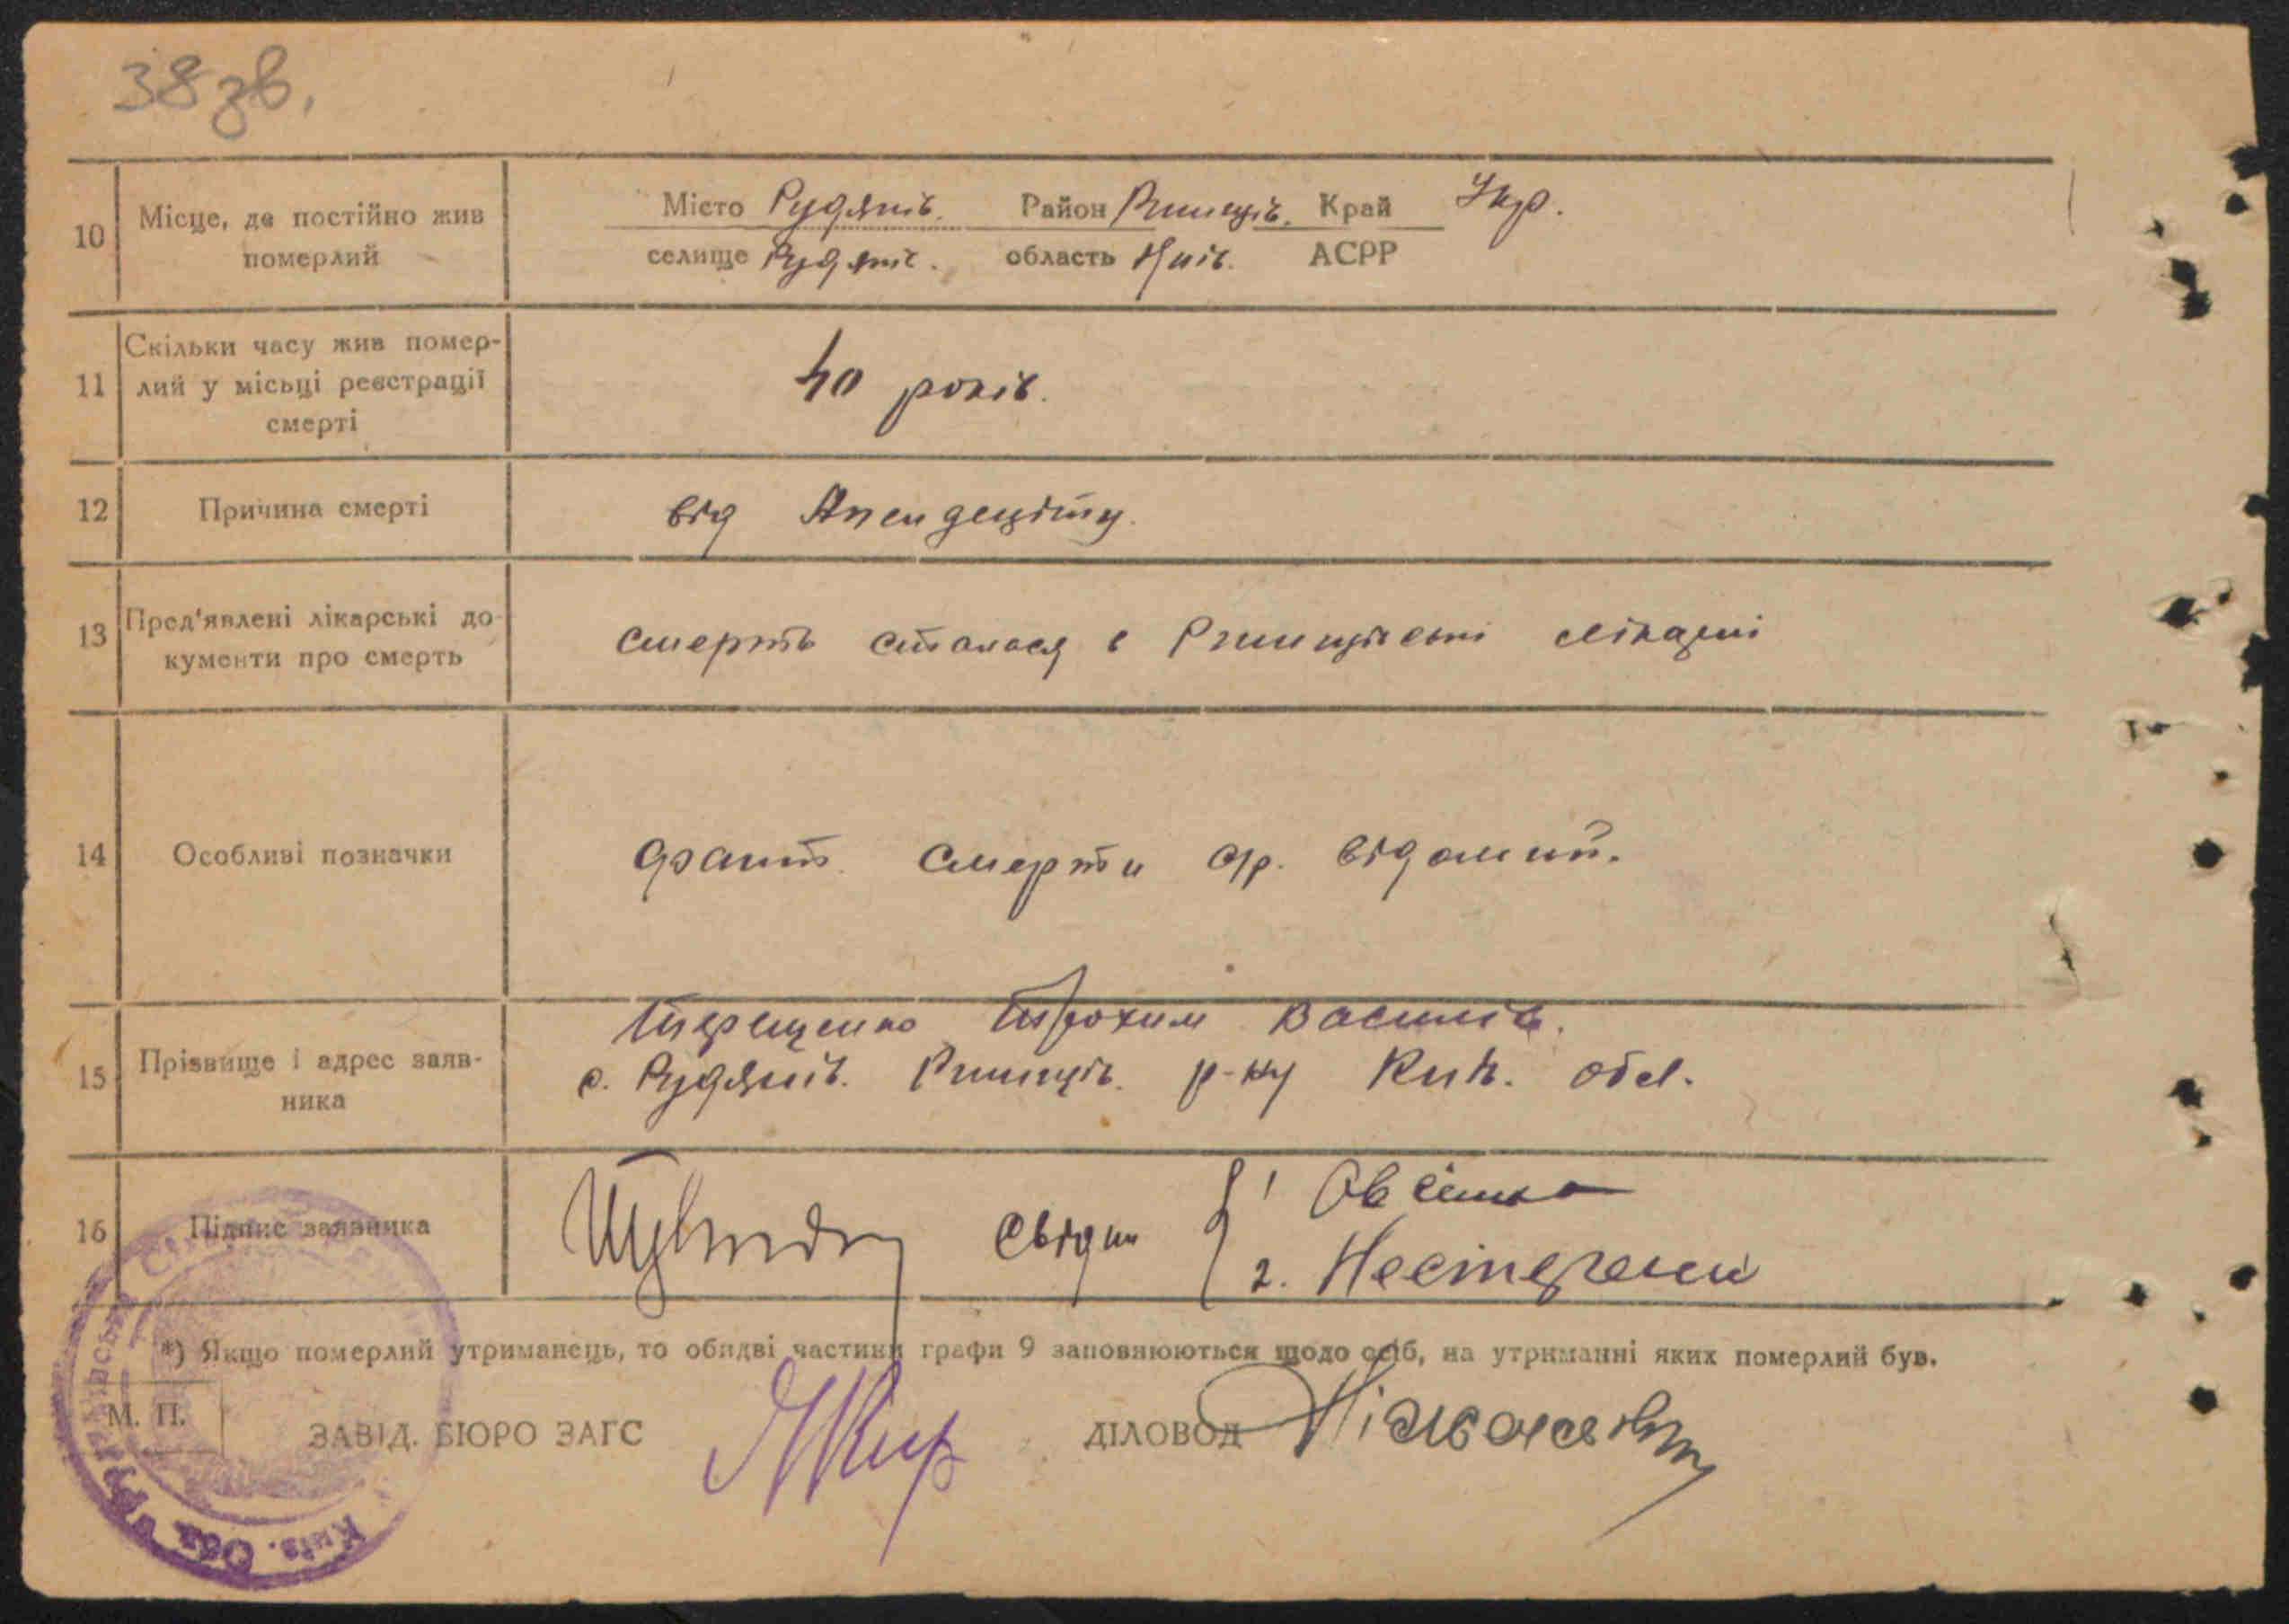 38 зв.
10 Місце, де постійно жив померлий
Місто Рудяків. Район Ржищів. Край Укр.
селище Рудяків. область Київ. АСРР
11 Скільки часу жив помер-
лий у місьці реєстрації
смерті
40 років.
12 Причина смерті
від Апендециту.
13 Пред'явлені лікарські до-
кументи про смерть
смерть сталася в Ржищівські лікарні
14 Особливі позначки
факт. смерти відомий.
15 Прізвище і адрес заяв-
ника
Терещенко Трохим Василів.
с. Рудяків. Ржищів. р-ну Київ. обл.
16 Підпис заявника
свідки
1 Овсієнко
2. Нестеренки
*) Якщо померлий утриманець, то обидві частини графи 9 заповнюються щодо осіб, на утриманні яких померлий був.
М. П.
ЗАВІД. БЮРО ЗАГС
ДІЛОВОД
Київ. Обл